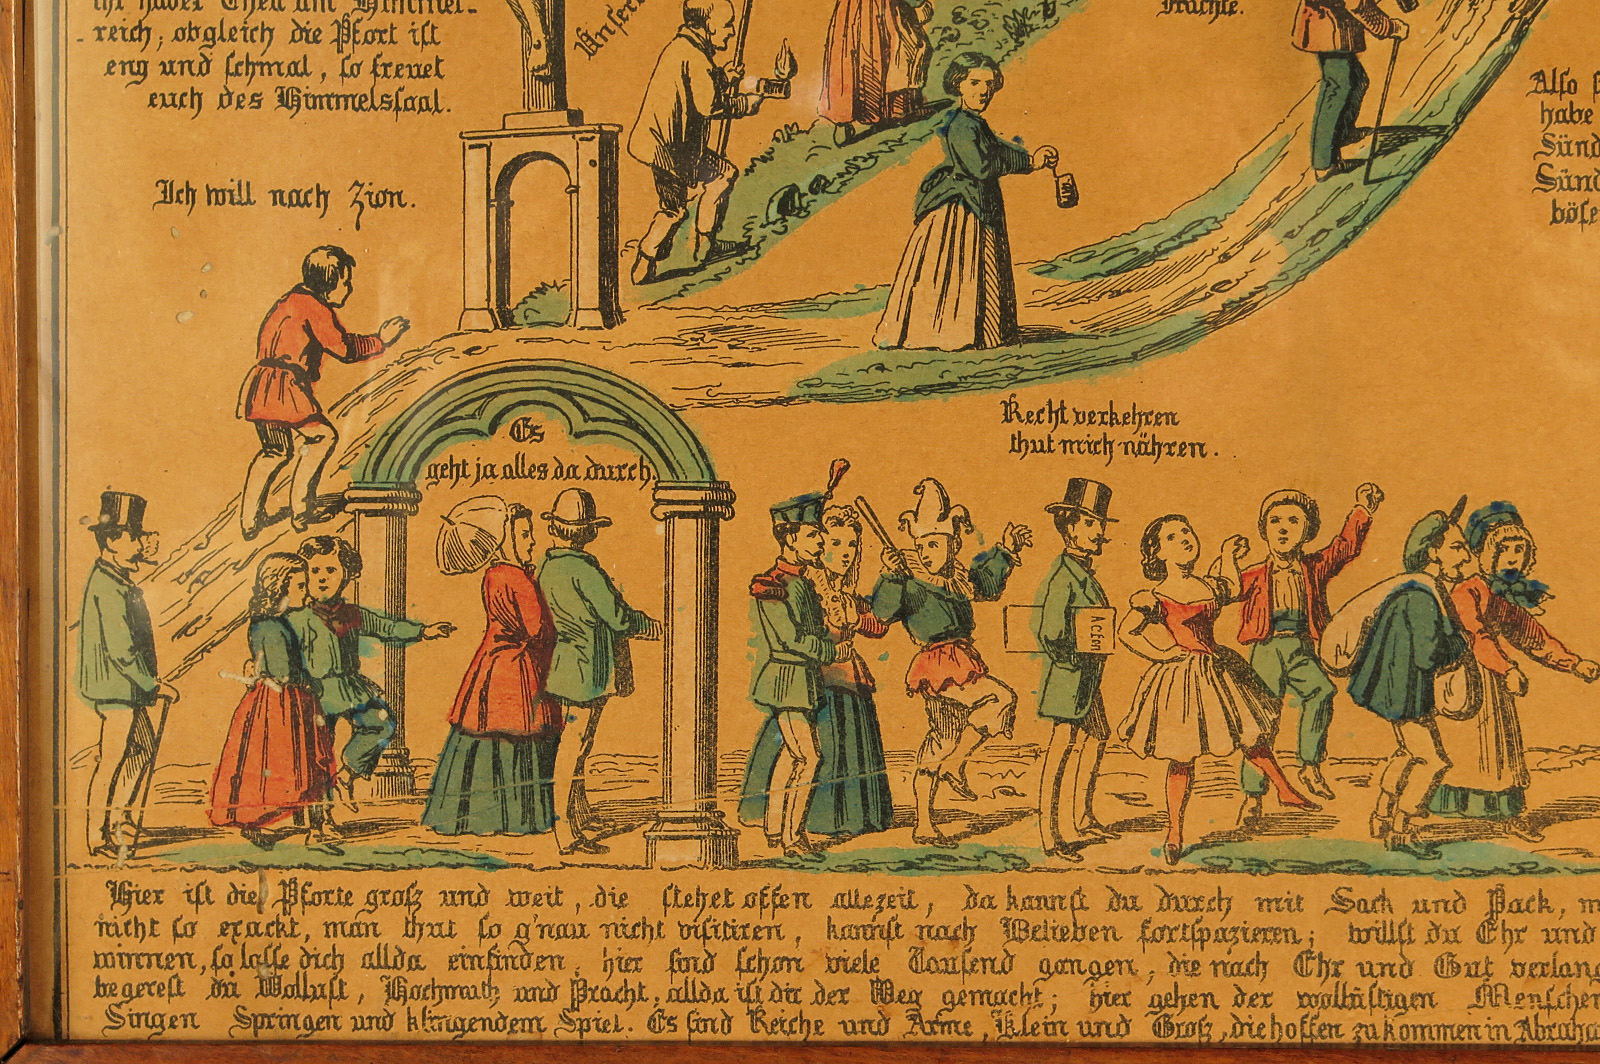 ihr habet Theil am Himmel-
reich; obgleich die Pfort ist
eng und schmal, so freuet
euch des Himmelssaal.
Unser
Früchte.
Also
habe
Sünd
Sünd
böse
Ich will nach Zion.
Es
geht ja alles da durch.
Recht verkehren
thut mich nähren.
Acten
Hier ist die Pforte groß und weit, die stehet offen allezeit, da kannst du durch mit Sack und Pack, m
nicht so exackt, man thut so g'nau nicht visitiren, kannst nach Belieben fortspazieren; willst du Ehr und
winnen, so lasse dich allda einfinden, hier sind schon viele Tausend gangen, die nach Ehr und Gut verlang
begerest du Wollust, Hochmuth und Pracht, allda ist dir der Weg gemacht; hier gehen der wollüstigen Menschen
Singen Springen und klingendem Spiel. Es sind Reiche und Arme, Klein und Groß, die hoffen zu kommen in Abraha